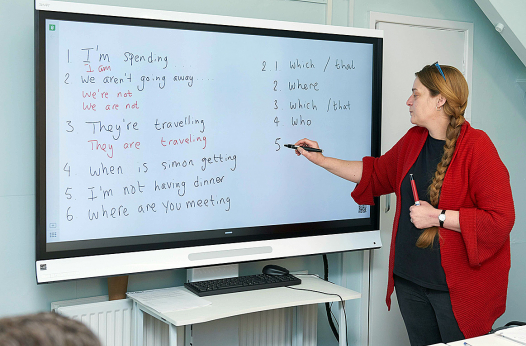 1 I'm spending ...
I am
2 we aren't going away ....
We're not
We are not
3 They're travelling
They are traveling
4 when is simon getting
5. I'm not having dinner
6 where are you meeting
2 1 which / that
2. where
3 which / that
4 who
5